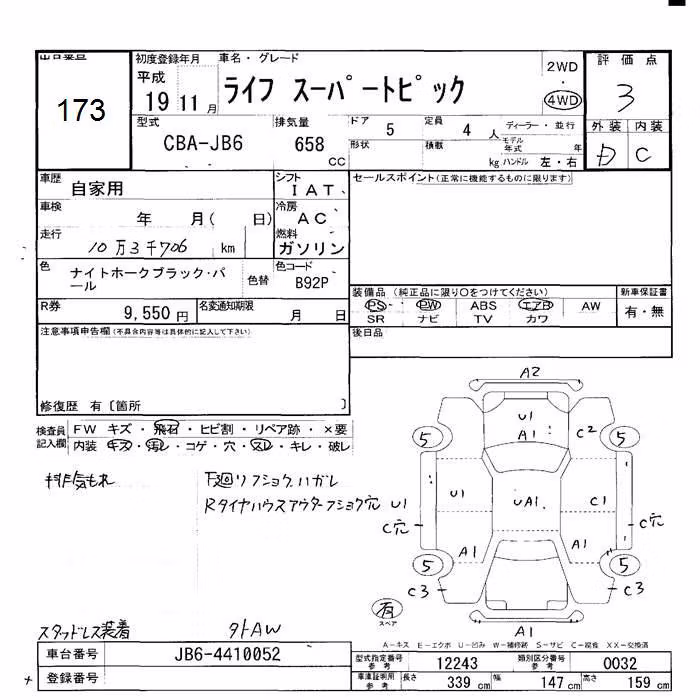 出品番号
173
初度登録年月 車名・グレード
平成 19 11 月 ライフ スーパートピック
2WD
・
4WD
評価点
3
型式 排気量 ドア 5 定員 4 人 ディーラー・並行
CBA-JB6 658 cc 形状 積載 kg モデル年式 年 ハンドル 左・右
外装 内装
D C
車歴 自家用 シフト IAT、 セールスポイント(正常に機能するものに限ります)
車検 年 月( 日) 冷房 AC
走行 10万3千706 km 燃料 ガソリン
色 ナイトホークブラック・パール 色替 色コード B92P
R券 9,550 円 名変通知期限 月 日
装備品 (純正品に限り○をつけてください) 新車保証書
PS PW ABS エアB AW 有・無
SR ナビ TV カワ
注意事項申告欄(不具合内容等は具体的に記入して下さい) 後日品
修復歴 有〔箇所 〕
検査員記入欄 FW キズ・飛石・ヒビ割・リペア跡・×要
内装 キズ・汚レ・コゲ・穴・スレ・キレ・破レ
排気もれ 下廻リフショクハガレ
Rタイヤハウスアウターフショク穴
A2
U1 A1 C2
5 5
U1 UA1 C1
U1
C穴 C穴
A1 A1
5 5
C3 C3
有 スペア
A1
スタッドレス装着 外AW
A－キズ E－エクボ U－凹み W－補修跡 S－サビ C－腐食 XX－交換済
車台番号 JB6-4410052 型式指定番号 参考 12243 類別区分番号 参考 0032
登録番号 車庫証明用 参考 長さ 339 cm 幅 147 cm 高さ 159 cm